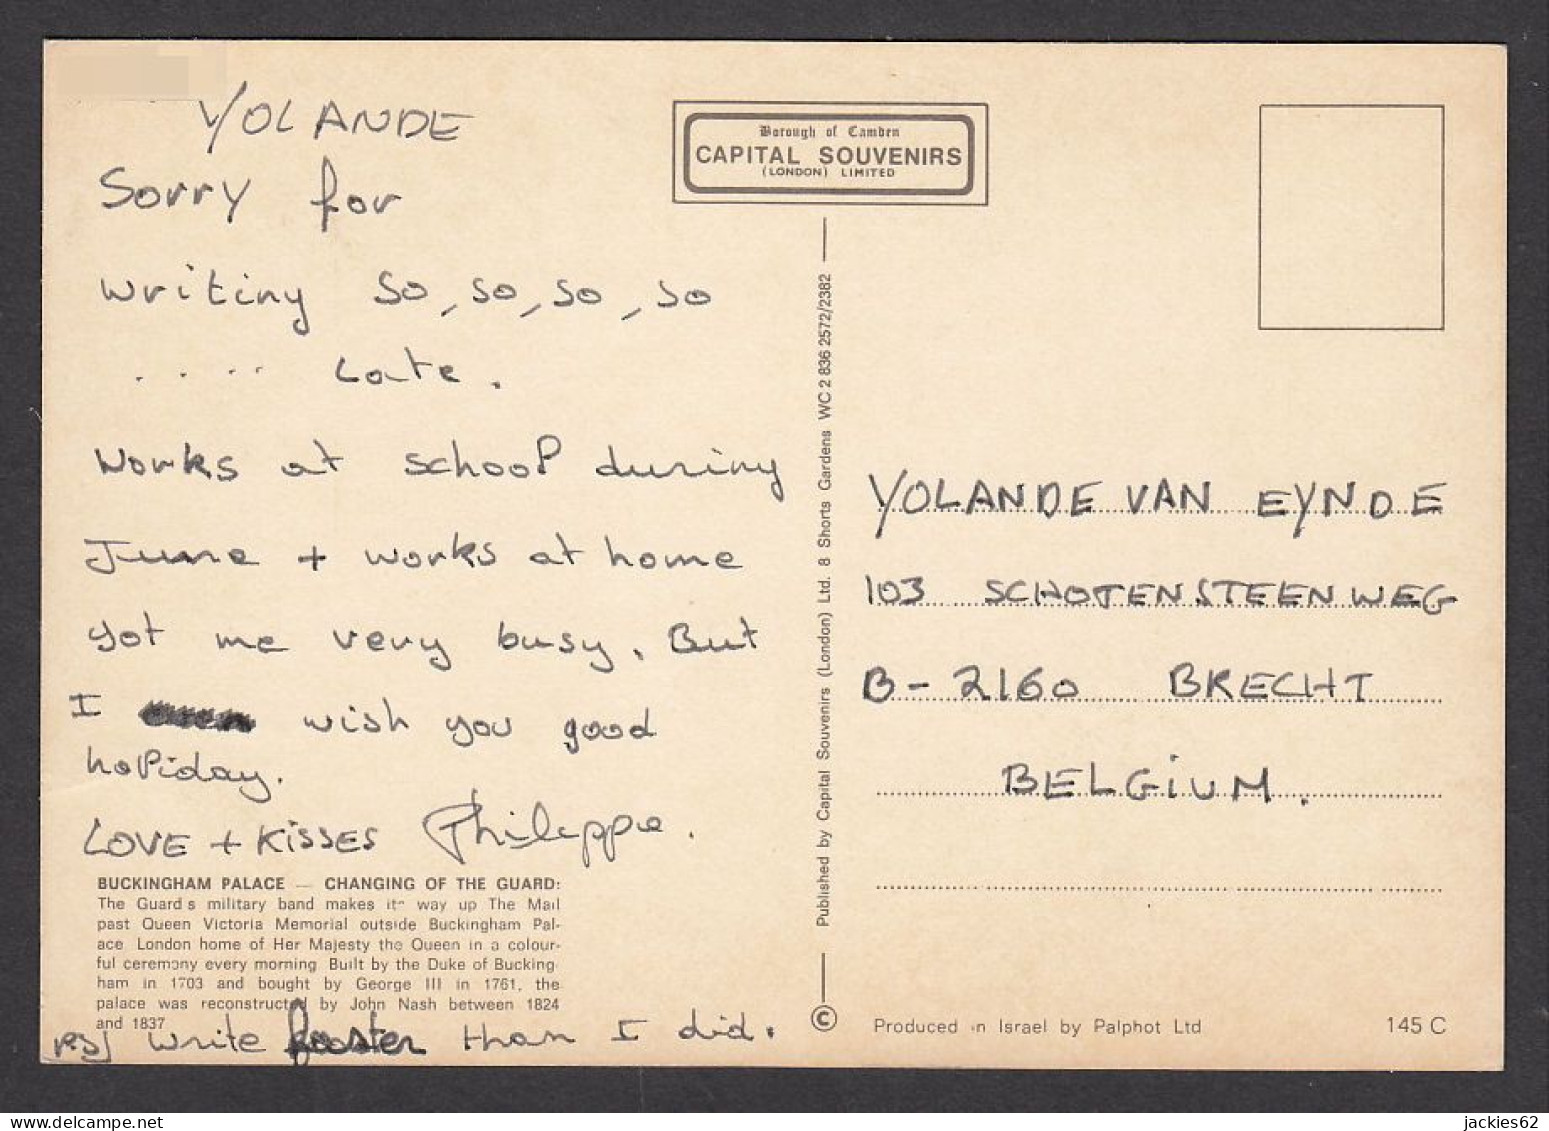 YOLANDE
Sorry for
writing so, so, so, so
.... Late.
Works at school during
June + works at home
got me very busy. But
I wish you good
holiday.
LOVE + KISSES Philippe.
BUCKINGHAM PALACE — CHANGING OF THE GUARD:
The Guards military band makes its way up The Mall
past Queen Victoria Memorial outside Buckingham Pal-
ace London home of Her Majesty the Queen in a colour-
ful ceremony every morning Built by the Duke of Bucking-
ham in 1703 and bought by George III in 1761, the
palace was reconstructed by John Nash between 1824
and 1837
P.S) write faster than I did.
Borough of Camden
CAPITAL SOUVENIRS
(LONDON) LIMITED
Published by Capital Souvenirs (London) Ltd. 8 Shorts Gardens WC 2 836 2572/2382
©
YOLANDE VAN EYNDE
103 SCHOTENSTEENWEG
B-2160 BRECHT
BELGIUM.
Produced in Israel by Palphot Ltd
145 C
delcampe.net
jackies62